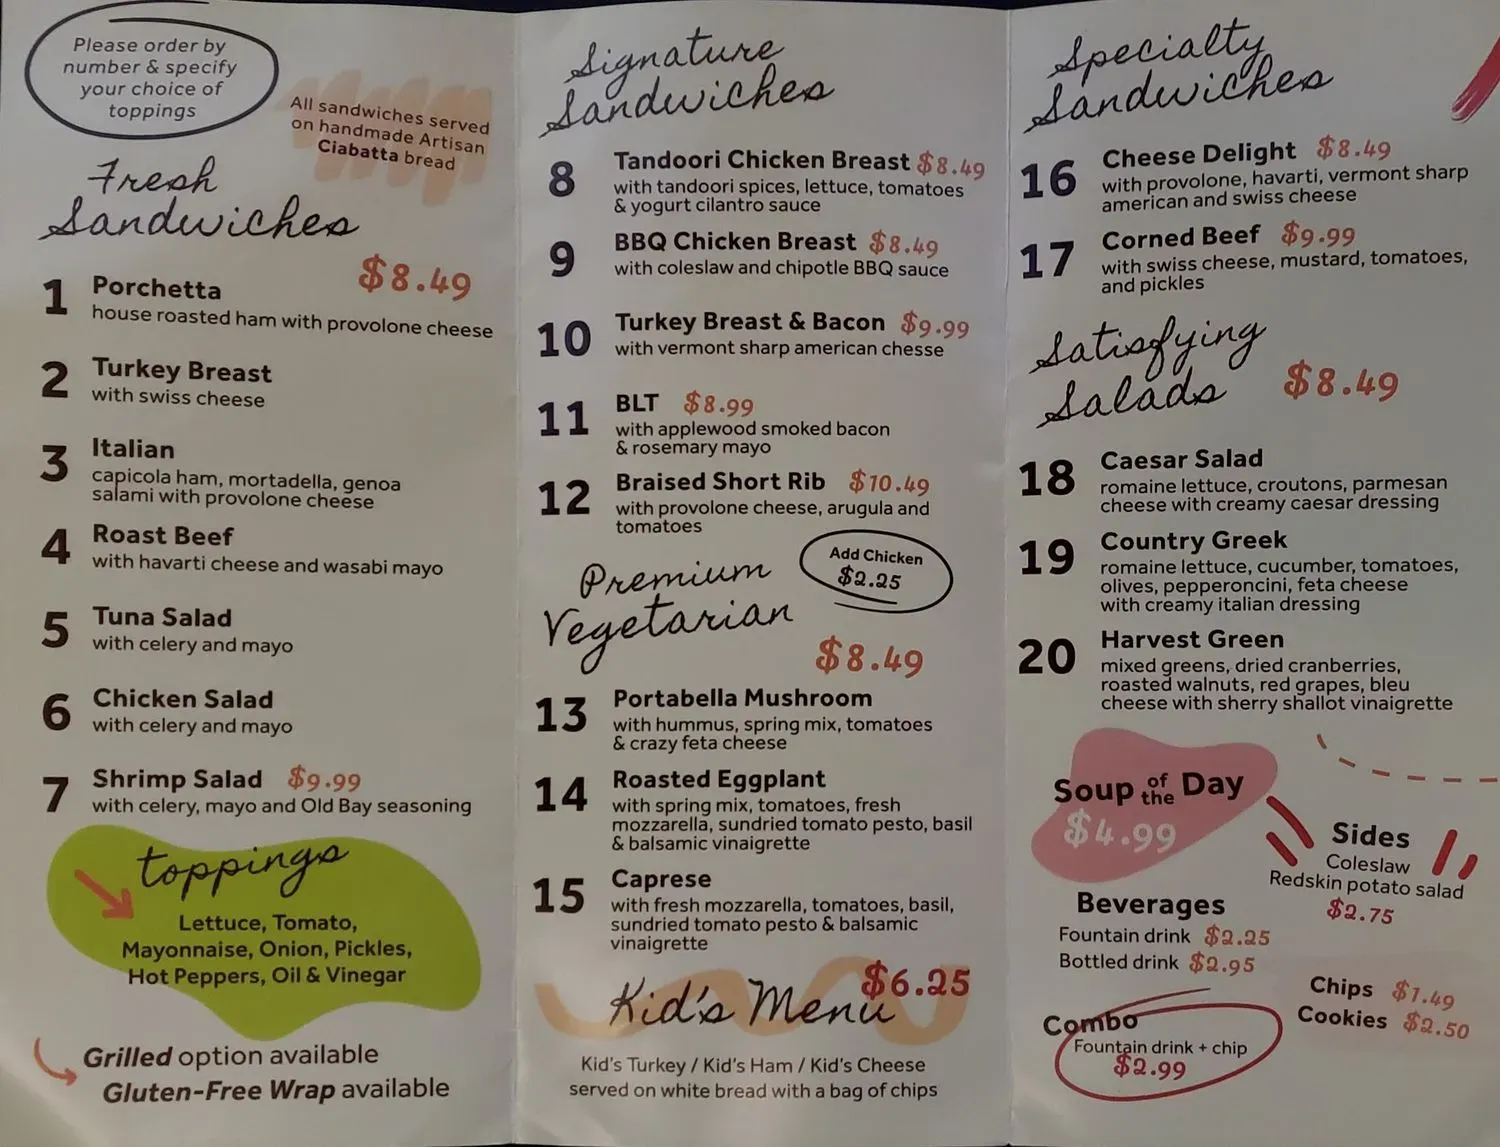 Please order by
number & specify
your choice of
toppings
All sandwiches served
on handmade Artisan
Ciabatta bread
Fresh
Sandwiches
$8.49
1 Porchetta
house roasted ham with provolone cheese
2 Turkey Breast
with swiss cheese
3 Italian
capicola ham, mortadella, genoa
salami with provolone cheese
4 Roast Beef
with havarti cheese and wasabi mayo
5 Tuna Salad
with celery and mayo
6 Chicken Salad
with celery and mayo
7 Shrimp Salad $9.99
with celery, mayo and Old Bay seasoning
toppings
Lettuce, Tomato,
Mayonnaise, Onion, Pickles,
Hot Peppers, Oil & Vinegar
Grilled option available
Gluten-Free Wrap available
Signature
Sandwiches
8 Tandoori Chicken Breast $8.49
with tandoori spices, lettuce, tomatoes
& yogurt cilantro sauce
9 BBQ Chicken Breast $8.49
with coleslaw and chipotle BBQ sauce
10 Turkey Breast & Bacon $9.99
with vermont sharp american chesse
11 BLT $8.99
with applewood smoked bacon
& rosemary mayo
12 Braised Short Rib $10.49
with provolone cheese, arugula and
tomatoes
Add Chicken
$2.25
Premium
Vegetarian
$8.49
13 Portabella Mushroom
with hummus, spring mix, tomatoes
& crazy feta cheese
14 Roasted Eggplant
with spring mix, tomatoes, fresh
mozzarella, sundried tomato pesto, basil
& balsamic vinaigrette
15 Caprese
with fresh mozzarella, tomatoes, basil,
sundried tomato pesto & balsamic
vinaigrette
Kid's Menu $6.25
Kid's Turkey / Kid's Ham / Kid's Cheese
served on white bread with a bag of chips
Specialty
Sandwiches
16 Cheese Delight $8.49
with provolone, havarti, vermont sharp
american and swiss cheese
17 Corned Beef $9.99
with swiss cheese, mustard, tomatoes,
and pickles
Satisfying
Salads $8.49
18 Caesar Salad
romaine lettuce, croutons, parmesan
cheese with creamy caesar dressing
19 Country Greek
romaine lettuce, cucumber, tomatoes,
olives, pepperoncini, feta cheese
with creamy italian dressing
20 Harvest Green
mixed greens, dried cranberries,
roasted walnuts, red grapes, bleu
cheese with sherry shallot vinaigrette
Soup of the Day
$4.99
Sides
Coleslaw
Redskin potato salad
$2.75
Beverages
Fountain drink $2.25
Bottled drink $2.95
Chips $1.49
Cookies $2.50
Combo
Fountain drink + chip
$2.99